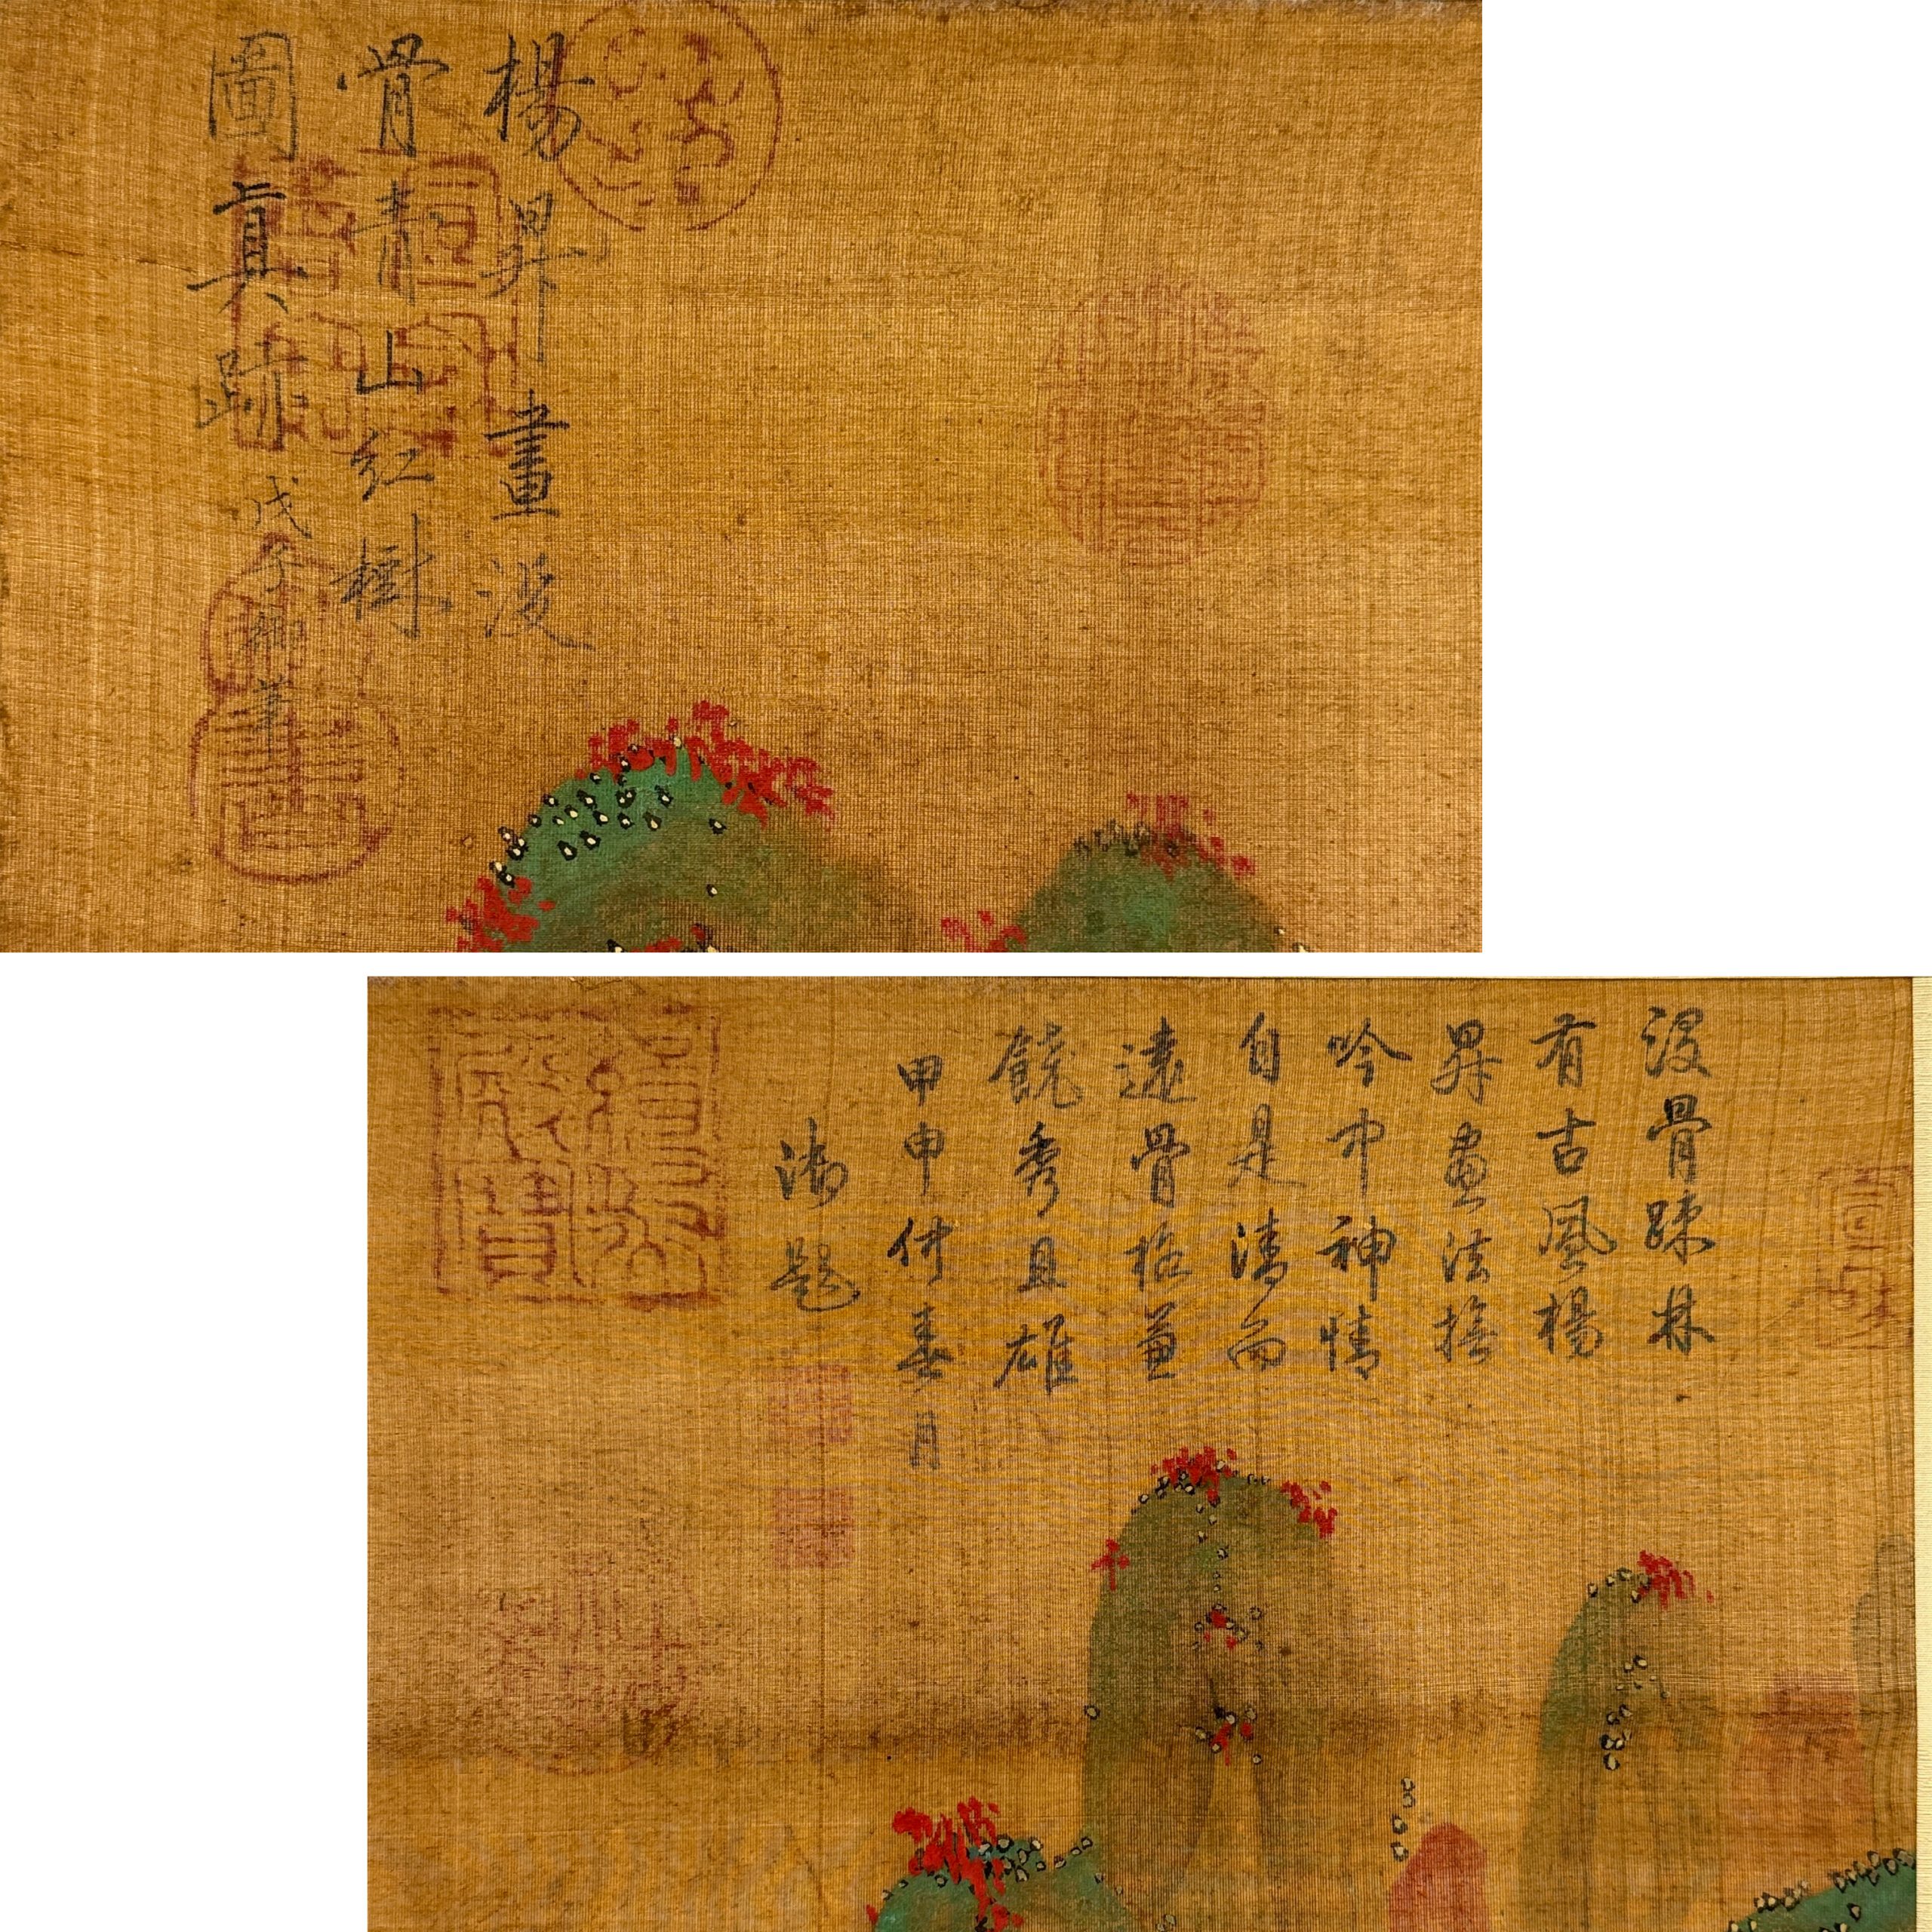 楊昇畫沒
骨青山紅樹
圖真跡
戊子御筆
沒骨踈林
有古風楊
昇畫法撫
吟中神情
自是清而
遠骨格兼
饒秀且雄
甲申仲春月
御題